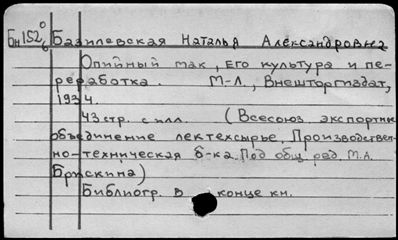 Бн152 0/6 Базилевская Наталья Александровна
Опийный мак, его культура и пе-
реработка. М-Л., Внешторгиздат,
1934.
43 стр. с илл. (Всесоюз. экспортное
объединение лектехсырье. Производствен-
но-техническая б-ка. Под общ. ред. М.А.
Брискина)
Библиогр. в конце кн.